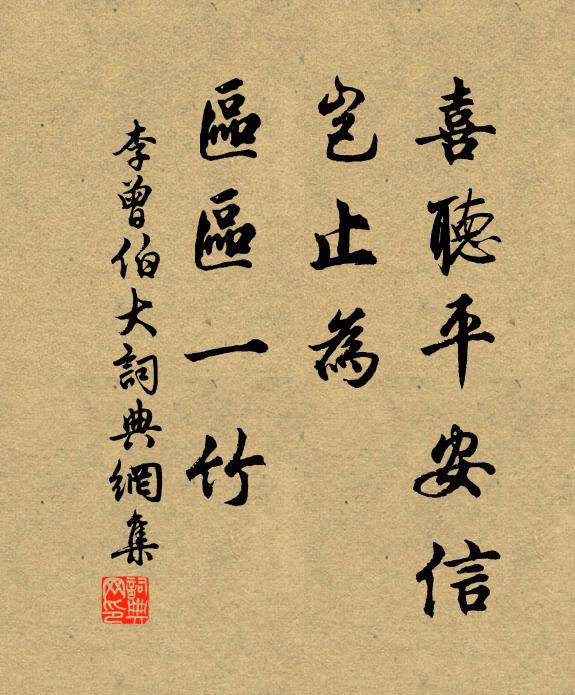 喜聽平安信
豈止為
區區一竹
李曾伯大詞典網集
詞典
网印